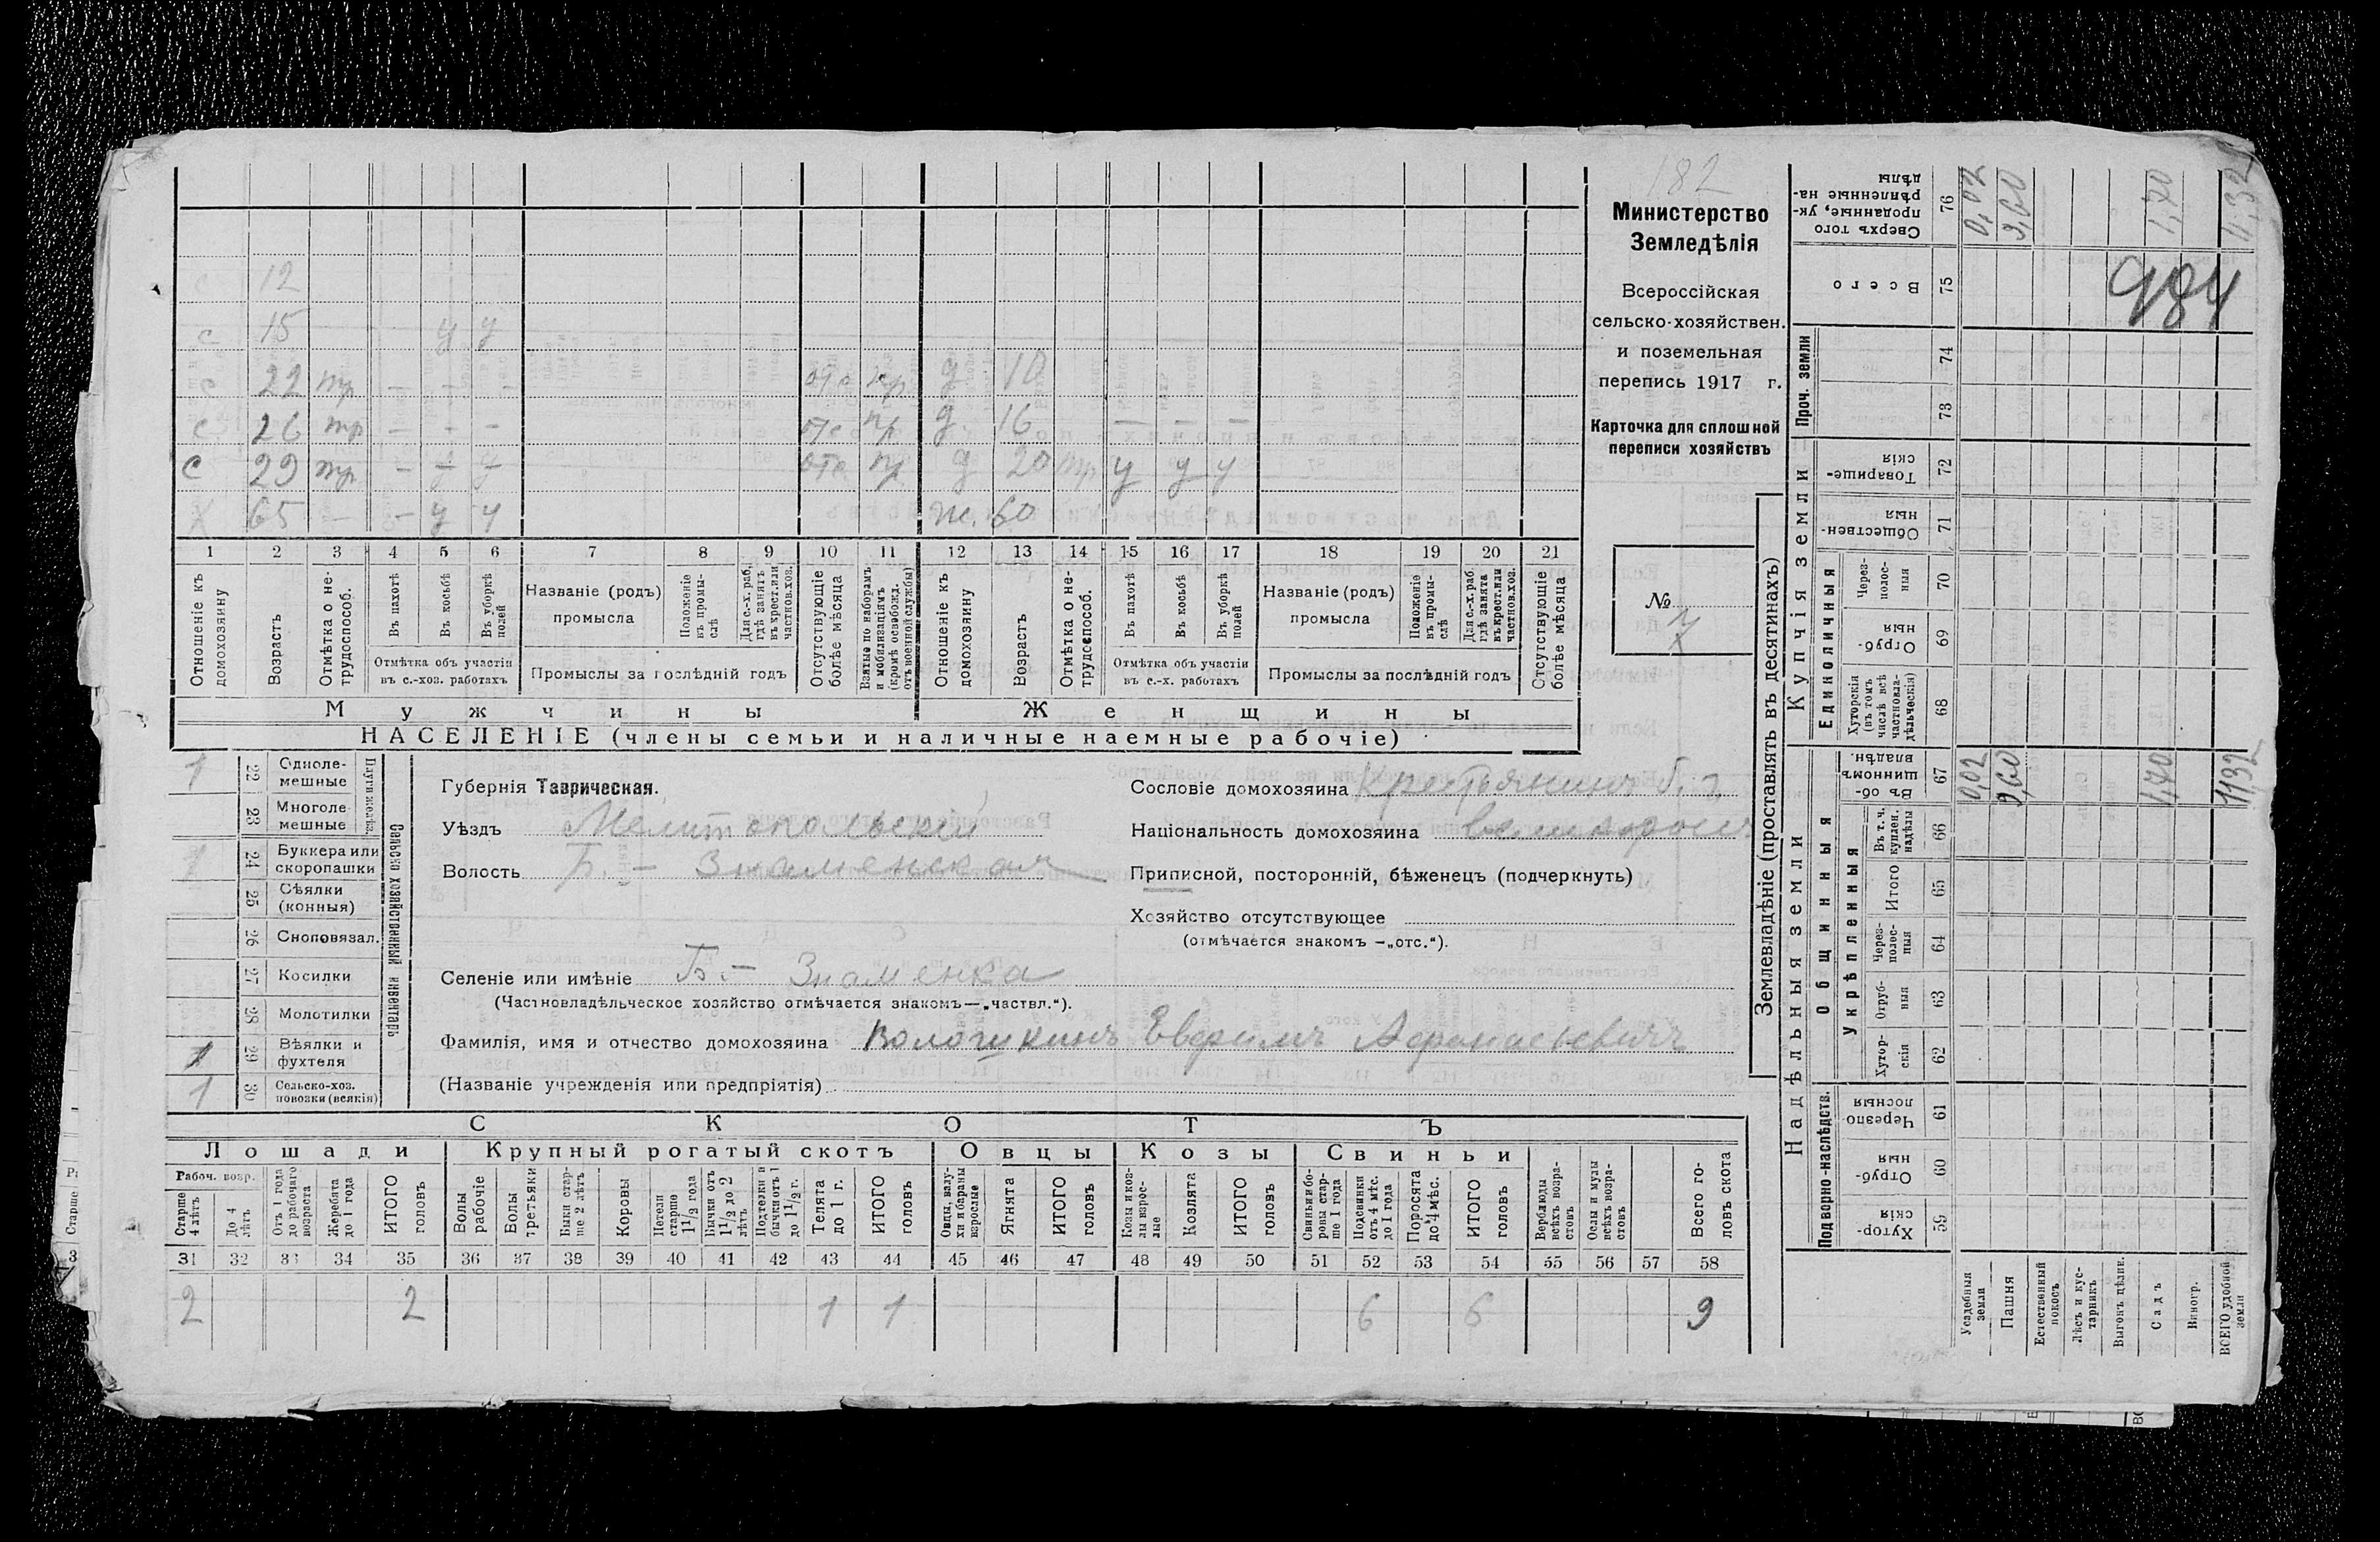 182
Министерство
Земледѣлія
Всероссійская
сельско-хозяйствен.
и поземельная
перепись 1917 г.
Карточка для сплошной
переписи хозяйствъ
№
7
с 12
с 15 у у
с 22 тр – – – отс пр д 10
с 26 тр – – – отс пр д. 16 – – –
с 29 тр – – – отс пр д 20 тр у у у
х 65 – – у у ж. 60
1 2 3 4 5 6 7 8 9 10 11 12 13 14 15 16 17 18 19 20 21
Отношеніе къ домохозяину
Возрастъ
Отмѣтка о не-трудоспособ.
Въ пахотѣ
Въ косьбѣ
Въ уборкѣ полей
Отмѣтка объ участіи въ с.-хоз. работахъ
Названіе (родъ) промысла
Положеніе въ промы-слѣ
Для с.-х. раб, гдѣ занятъ въ крест. или частнов. хоз.
Промыслы за послѣдній годъ
Отсутствующіе болѣе мѣсяца
Взятые по наборамъ и мобилизаціямъ (кромѣ освобожд. отъ военной службы)
Отношеніе къ домохозяину
Возрастъ
Отмѣтка о не-трудоспособ.
Въ пахотѣ
Въ косьбѣ
Въ уборкѣ полей
Отмѣтка объ участіи въ с.-х. работахъ
Названіе (родъ) промысла
Положеніе въ промы-слѣ
Для с.-х. раб. гдѣ занята въ крест. или частнов. хоз.
Промыслы за послѣдній годъ
Отсутствующіе болѣе мѣсяца
Мужчины Женщины
НАСЕЛЕНІЕ (члены семьи и наличные наемные рабочіе)
Сельско хозяйственный инвентарь
Плуги желѣз.
1 22 Одноле-мешные
23 Многоле-мешные
1 24 Буккера или скоропашки
25 Сѣялки (конныя)
26 Сноповязал.
27 Косилки
28 Молотилки
1 29 Вѣялки и фухтеля
1 30 Сельско-хоз. повозки (всякія)
Губернія Таврическая.
Уѣздъ Мелитопольскій
Волость Б.-Знаменская
Селеніе или имѣніе Б.-Знаменка
(Частновладѣльческое хозяйство отмѣчается знакомъ—„частвл.“).
Фамилія, имя и отчество домохозяина Евфимъ Афанасьевичъ
(Названіе учрежденія или предпріятія)
Сословіе домохозяина Крестьянинъ
Національность домохозяина великороссъ
Приписной, посторонній, бѣженецъ (подчеркнуть)
Хозяйство отсутствующее
(отмѣчается знакомъ —„отс.“).
СКОТЪ
Лошади Крупный рогатый скотъ Овцы Козы Свиньи
Рабоч. возр.
Старше 4 лѣтъ
До 4 лѣтъ
Отъ 1 года до рабочаго возраста
Жеребята до 1 года
ИТОГО головъ
Волы рабочіе
Волы третьяки
Быки стар-ше 2 лѣтъ
Коровы
Нетели старше 1 1/2 года
Бычки отъ 1 1/2 до 2 лѣтъ
Подтелки и бычки отъ 1 до 1 1/2 г.
Телята до 1 г.
ИТОГО головъ
Овцы, валу-хи и бараны взрослые
Ягнята
ИТОГО головъ
Козы и коз-лы взрос-лые
Козлята
ИТОГО головъ
Свиньи и бо-ровы стар-ше 1 года
Подсвинки отъ 4 мѣс. до 1 года
Поросята до 4 мѣс.
ИТОГО головъ
Верблюды всѣхъ возра-стовъ
Ослы и мулы всѣхъ возра-стовъ
Всего го-ловъ скота
31 32 33 34 35 36 37 38 39 40 41 42 43 44 45 46 47 48 49 50 51 52 53 54 55 56 57 58
2 2 1 1 6 6 9
Землевладѣніе (проставлять въ десятинахъ)
Надѣльныя земли Купчія земли Проч. земли
Подворно-наслѣдств. Общинныя Единоличныя
Укрѣпленныя
59 Хутор-скія
60 Отруб-ныя
61 Черезпо-лосныя
62 Хутор-скія
63 Отруб-ныя
64 Через-полос-ныя
65 Итого
66 Въ т. ч. куплен. надѣлы
67 Въ об-щинномъ владѣн.
68 Хуторскія (въ томъ числѣ всѣ частновла-дѣльческія)
69 Отруб-ныя
70 Через-полос-ныя
71 Обществен-ныя
72 Товарище-скія
73
74
75 Всего
76 Сверхъ того проданные, ук-рѣпленные на-дѣлы
Усадебныя земли
Пашня
Естественный покосъ
Лѣсъ и кус-тарникъ
Выгонъ цѣлин.
Садъ
Виногр.
ВСЕГО удобной земли
0,02 9,60 1,70 11,32
0,02 9,60 1,70 11,32
984